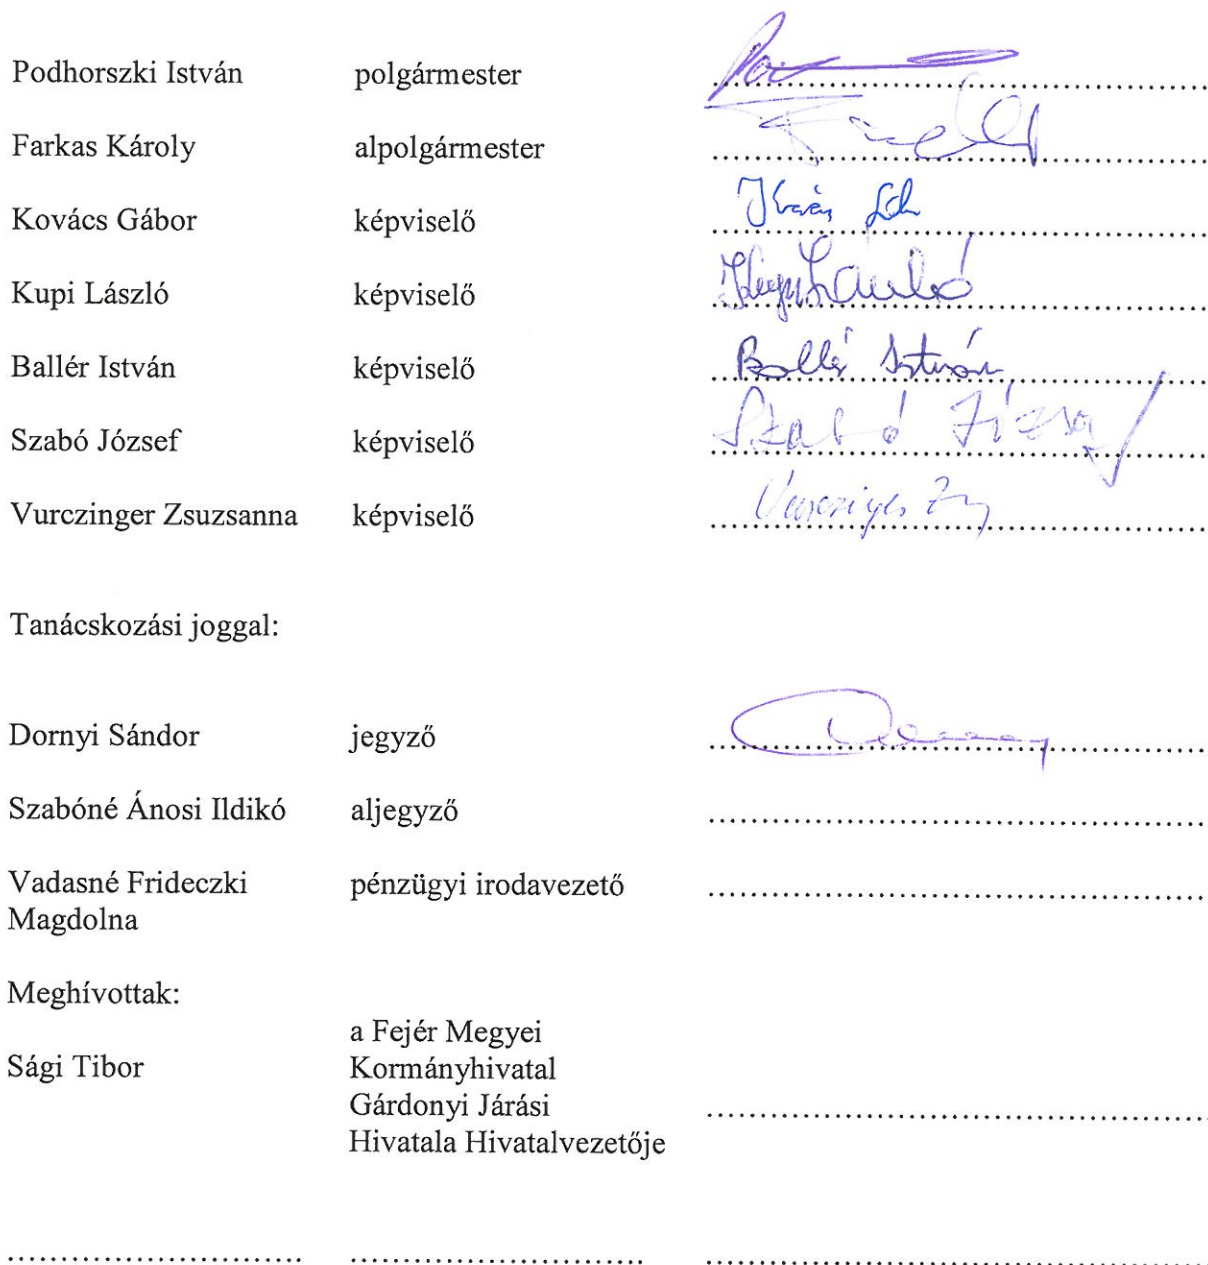 Podhorszki István polgármester ..........
Farkas Károly alpolgármester ..........
Kovács Gábor képviselő ..........
Kupi László képviselő László ..........
Ballér István képviselő Ballér István ..........
Szabó József képviselő Szabó József ..........
Vurczinger Zsuzsanna képviselő ..........
Tanácskozási joggal:
Dornyi Sándor jegyző ..........
Szabóné Ánosi Ildikó aljegyző ..........
Vadasné Frideczki pénzügyi irodavezető ..........
Magdolna
Meghívottak:
a Fejér Megyei
Sági Tibor Kormányhivatal
Gárdonyi Járási ..........
Hivatala Hivatalvezetője
.......... .......... ..........